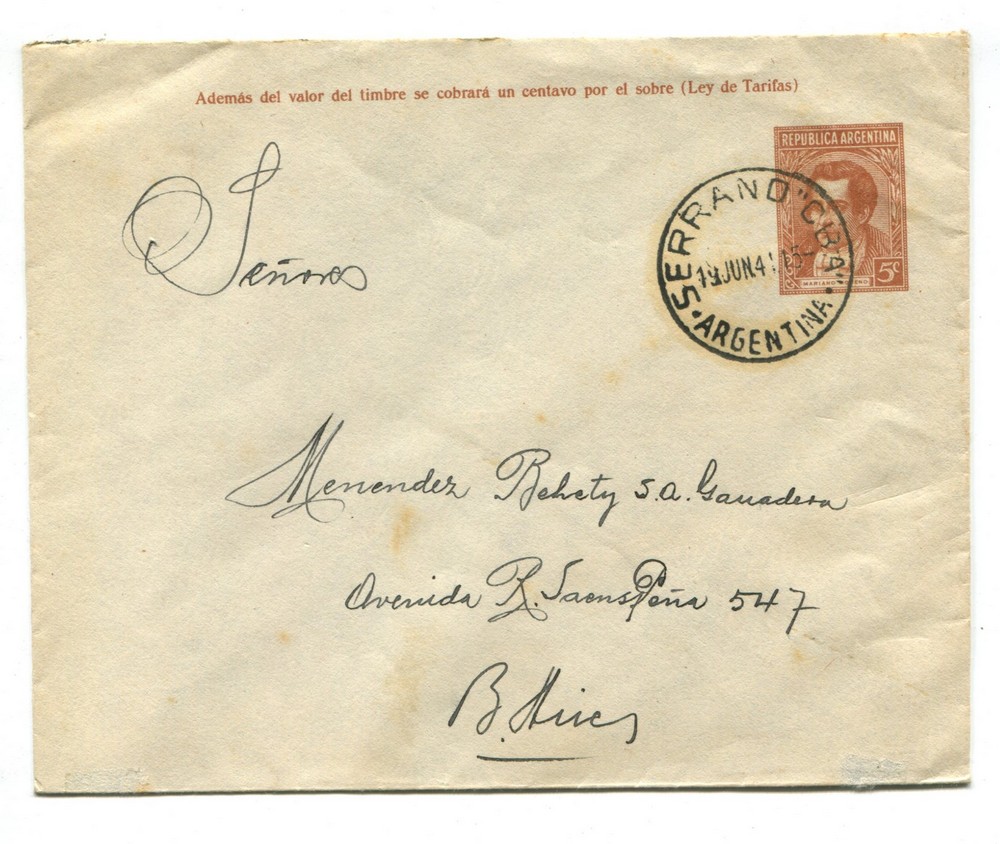 Además del valor del timbre se cobrará un centavo por el sobre (Ley de Tarifas)
REPUBLICA ARGENTINA
5c
SERRANO "CBA"
19 JUN 41
• ARGENTINA •
Señores
Menendez Behety S.A. Ganadera
Avenida R. Saens Peña 547
B. Aires